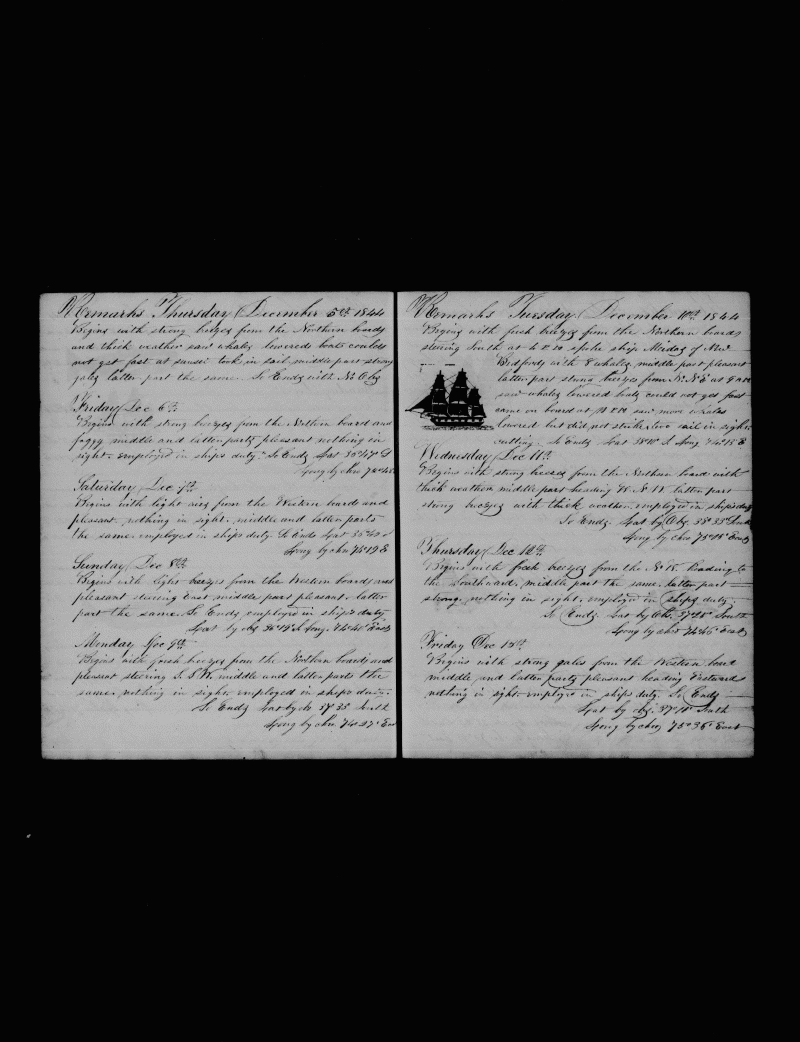 Remarks Thursday December 5th 1844
Begins with strong breezes from the Northern boards
and thick weather saw whales lowered boats could
not get fast at sunset took in sail middle part strong
gales latter part the same So Ends with No Obs
Friday Dec 6th
Begins with strong breezes from the Northern board and
foggy middle and latter parts pleasant nothing in
sight employed in ships duty So Ends Lat 35° 47' S
Long by chro
Saturday Dec 7th
Begins with light airs from the Western boards and
pleasant nothing in sight middle and latter parts
the same employed in ships duty So Ends Lat
Long by chr 75° 19 E
Sunday Dec 8th
Begins with light breezes from the Western boards and
pleasant steering East middle part pleasant latter
part the same So Ends employed in ships duty
Lat by obs 36° 19' S Long 74° 41' East
Monday Dec 9th
Begins with fresh breezes from the Northern boards and
pleasant steering S.S.W. middle and latter parts the
same nothing in sight employed in ships duty
So Ends Lat by ob 37° 35' South
Long by chr. 74° 27' East
Remarks Tuesday December 10th 1844
Begins with fresh breezes from the Northern boards
steering South at 4 P.M. spoke ship of New
Bedford with 8 whales middle part pleasant
latter part strong breezes from N.N.E at
saw whales lowered boats could not get fast
came on board at saw more whales
lowered but did not strike two sail in sight
cutting So Ends Lat 38° 10' S Long 74° 15 E
Wednesday Dec 11th
Begins with strong breezes from the Northern board with
thick weather middle part heading latter part
strong breezes with thick weather employed in ships duty
So Ends Lat by Obs 38° 33' South
Long by chr 75° 18' East
Thursday Dec 12th
Begins with fresh breezes from the heading to
the Southward, middle part the same latter part
strong nothing in sight employed in ships duty
So Ends Lat by Obs. South
Long by chr 74° 45' East
Friday Dec 13th
Begins with strong gales from the Western board
middle and latter parts pleasant heading
nothing in sight employed in ships duty So Ends
Lat by obs. 37° 18' South
Long by chr 75° 36' East